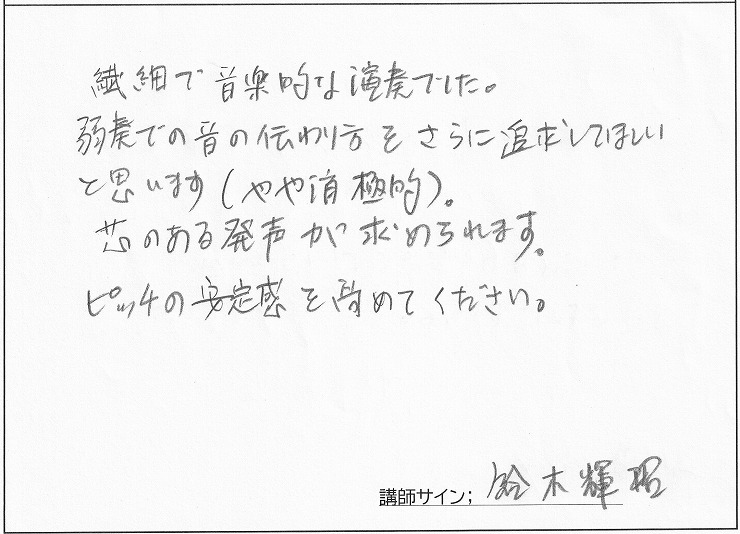 繊細で音楽的な演奏でした。
弱奏での音の伝わり方をさらに追求してほしい
と思います(やや消極的)。
芯のある発声が求められます。
ピッチの安定感を高めてください。
講師サイン; 鈴木輝昭